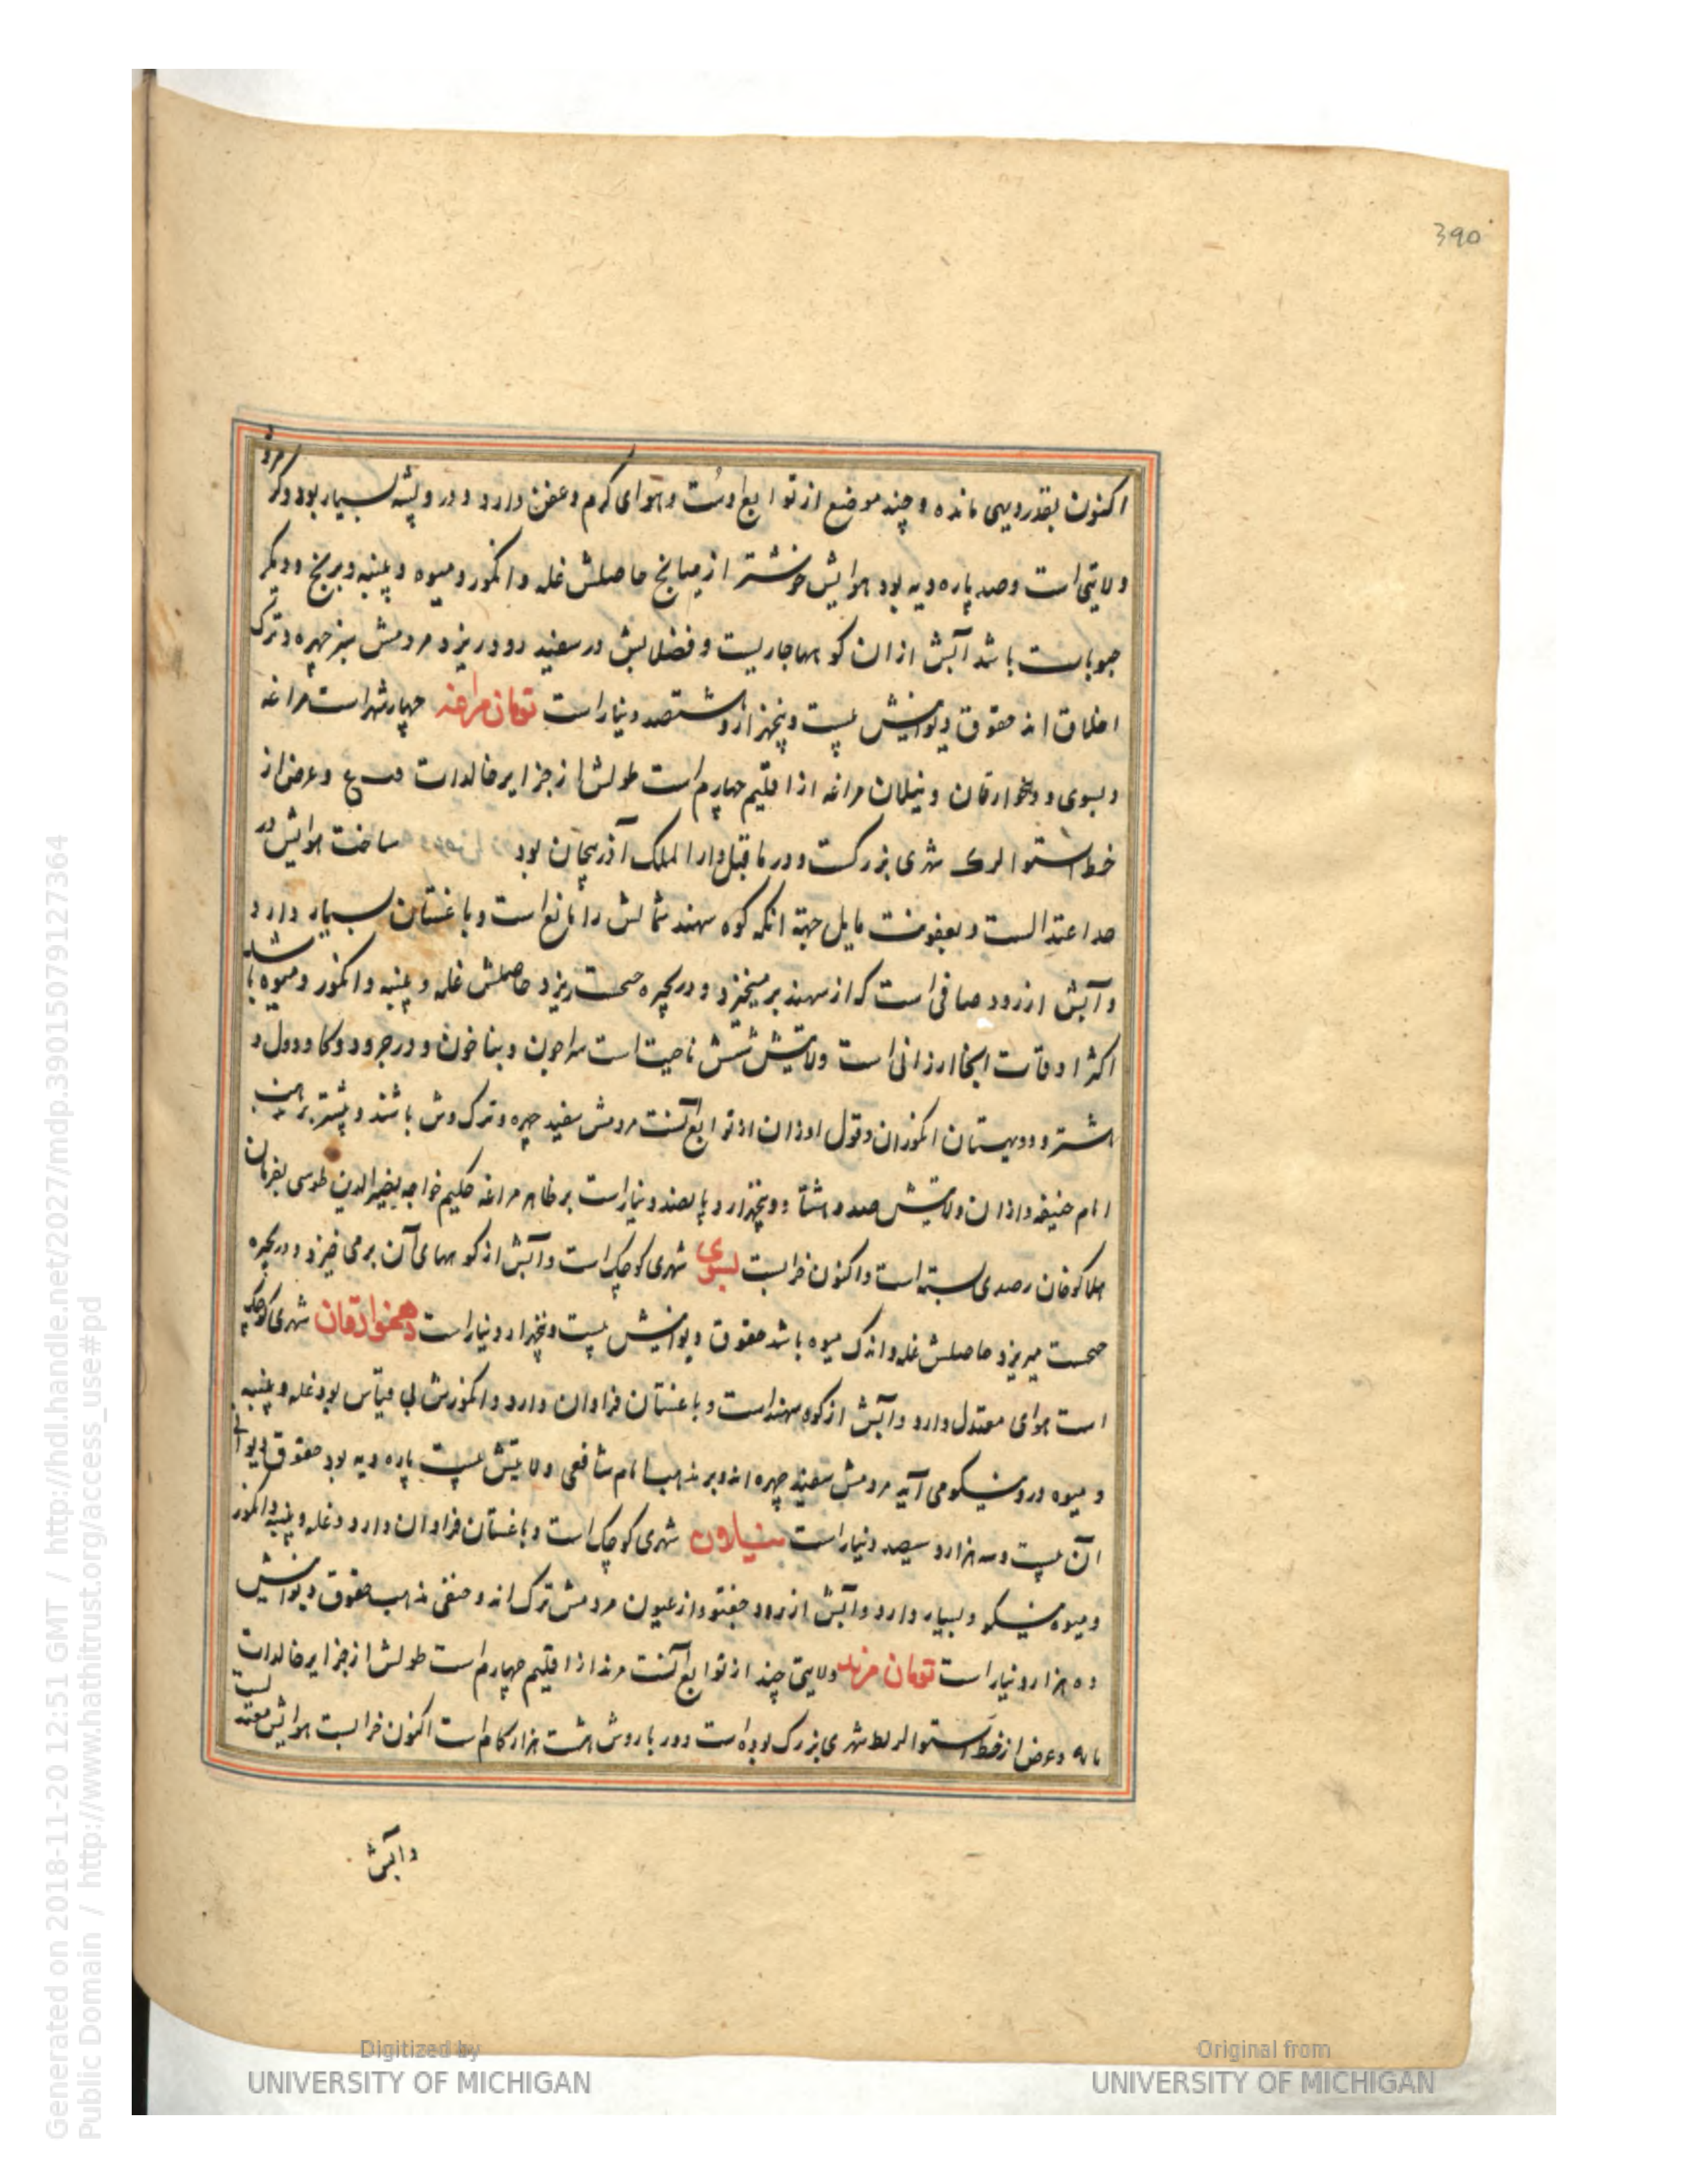 390
اکنون بقدر دیهی مانده و چند موضع از توابع اوست و هوای گرم و عفن دارد و درو پشه بسیار بود و کرمرود
ولایتی است و صد پاره دیه بود هوایش خوشتر از میانج حاصلش غله و انکور و میوه و پنبه و برنج و دیگر
حبوبات باشد آبش از ان کوهها جاریست و فضلابش در سفید رود ریزد مردمش سفید چهره و ترک
اخلاق اند حقوق دیوانیش بیست و پنجهزار و هشتصد دینار است تومان مراغه چهار شهر است مراغه
و بسوی و دهخوارقان و نیلان مراغه از اقلیم چهارم است طولش از جزایر خالدات و عرض از
خط استوا شهری بزرکست و در ما قبل دار الملک آذربیجان بود ساخت هوایش در
حد اعتدالست و بعفونت مایل جهة انکه کوه سهند شمالش را مانع است و باغستان بسیار دارد
و آبش از رود صافی است که از سهند بر میخیزد و در بحیره جیحست ریزد حاصلش غله و پنبه و انکور و میوه باشد
اکثر اوقات انجا ارزانی است ولایتش شش ناحیت است سراجون و بناخون و درجرود و کاودول و
هشترود و بهستان انکوران و قول اوزان از توابع آنست مردمش سفید چهره و ترک وش باشند و بیشتر بر مذهب
امام حنیفه و از ان ولایتش صد و هشتاد و پنجهزار و پانصد دینار است بر ظاهر مراغه حکیم خواجه نصیر الدین طوسی بفرمان
هلاکوخان رصدی بسته است و اکنون خرابست بسوی شهری کوچک است و آبش از کوههای آن برمی خیزد و در بحیره
جیحست میریزد حاصلش غله و اندک میوه باشد حقوق دیوانیش بیست و پنجهزار دینار است دهخوارقان شهری کوچک
است هوای معتدل دارد و آبش از کوه سهند است و باغستان فراوان دارد و انکورش بی قیاس بود غله و پنبه
و میوه درو نیکو می آید مردمش سفید چهره اند و بر مذهب امام شافعی ولایتش بیست پاره دیه بود حقوق دیوانی
آن بیست و سه هزار و سیصد دینار است نیلان شهری کوچک است و باغستان فراوان دارد و غله و پنبه و انکور
و میوه نیکو و بسیار دارد و آبش از رود جغتو و از عیون مردمش ترک اند و حنفی مذهب حقوق دیوانیش
ده هزار دینار است تومان مرند ولایتی چند از توابع آنست مرند از اقلیم چهارم است طولش از جزایر خالدات
و عرض از خط استوا شهری بزرک بوده است دور باروش هشت هزار کام است اکنون خرابست هوایش معتدلست
و آبش
Generated on 2018-11-20 12:51 GMT / http://hdl.handle.net/2027/mdp.39015079127364
Public Domain / http://www.hathitrust.org/access_use#pd
Digitized by
UNIVERSITY OF MICHIGAN
Original from
UNIVERSITY OF MICHIGAN